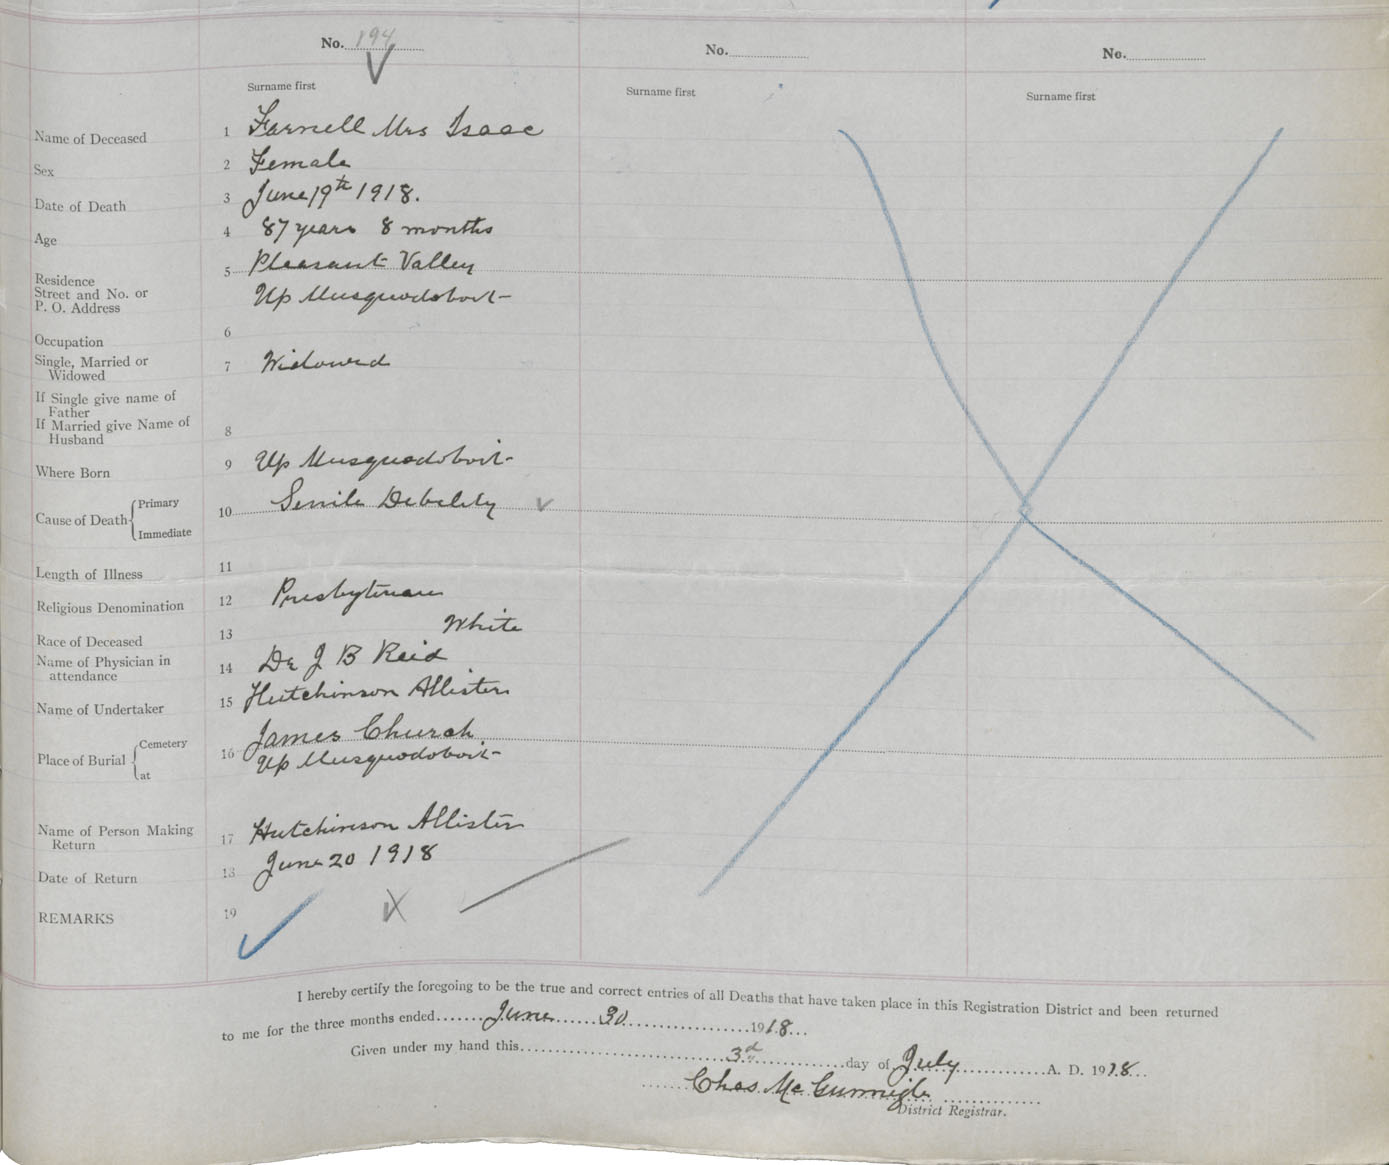 No. 194
No.
No.
Surname first
Surname first
Surname first
Name of Deceased 1 Farnell Mrs Isaac
Sex 2 Female
Date of Death 3 June 19th 1918.
Age 4 87 years 8 months
Residence 5 Pleasant Valley
Street and No. or
P. O. Address Up Musquodoboit
Occupation 6
Single, Married or
Widowed 7 Widowed
If Single give name of
Father
If Married give Name of
Husband 8
Where Born 9 Up Musquodoboit
Cause of Death Primary
Immediate 10 Senile Debelity
Length of Illness 11
Religious Denomination 12 Presbyterian
Race of Deceased 13 White
Name of Physician in
attendance 14 Dr J B Reid
Name of Undertaker 15 Hutchinson Allister
Place of Burial Cemetery
at 16 James Church
Up Musquodoboit
Name of Person Making
Return 17 Hutchinson Allister
Date of Return 18 June 20 1918
REMARKS 19
I hereby certify the foregoing to be the true and correct entries of all Deaths that have taken place in this Registration District and been returned
to me for the three months ended June 30 1918
Given under my hand this 3d day of July A. D. 1918
Chas McGunnigle
District Registrar.